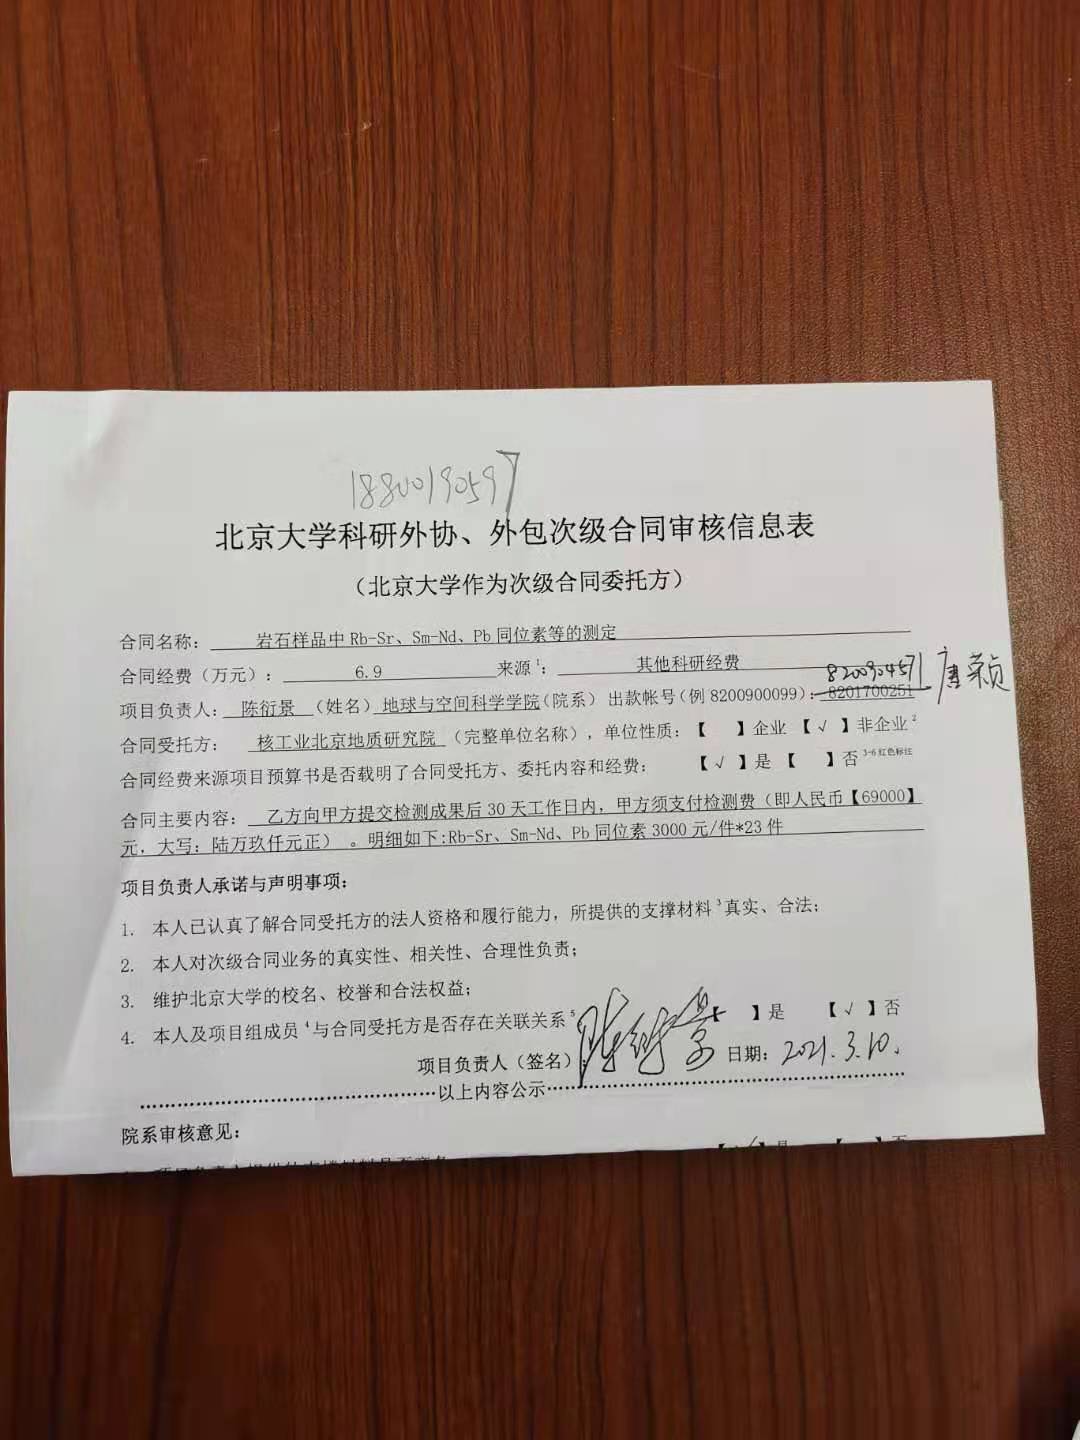 18800190597
北京大学科研外协、外包次级合同审核信息表
（北京大学作为次级合同委托方）
合同名称： 岩石样品中 Rb-Sr、Sm-Nd、Pb 同位素等的测定
合同经费（万元）： 6.9 来源1： 其他科研经费
8200904571 唐荣贞
项目负责人： 陈衍景 （姓名） 地球与空间科学学院（院系） 出款帐号（例 8200900099）： 8201700251
合同受托方： 核工业北京地质研究院 （完整单位名称），单位性质：【 】企业 【 √ 】非企业2
合同经费来源项目预算书是否载明了合同受托方、委托内容和经费： 【 √ 】是 【 】否 3-6 红色标注
合同主要内容： 乙方向甲方提交检测成果后 30 天工作日内，甲方须支付检测费（即人民币【69000】
元，大写：陆万玖仟元正） 。明细如下:Rb-Sr、Sm-Nd、Pb 同位素 3000 元/件*23 件
项目负责人承诺与声明事项：
1. 本人已认真了解合同受托方的法人资格和履行能力，所提供的支撑材料3真实、合法；
2. 本人对次级合同业务的真实性、相关性、合理性负责；
3. 维护北京大学的校名、校誉和合法权益；
4. 本人及项目组成员4与合同受托方是否存在关联关系5 【 】是 【 √ 】否
项目负责人（签名）： 陈衍景 日期： 2021.3.10.
以上内容公示
院系审核意见：